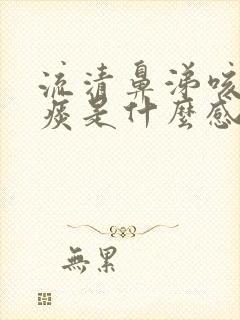 流清鼻涕咳
痰是什麼感
無累